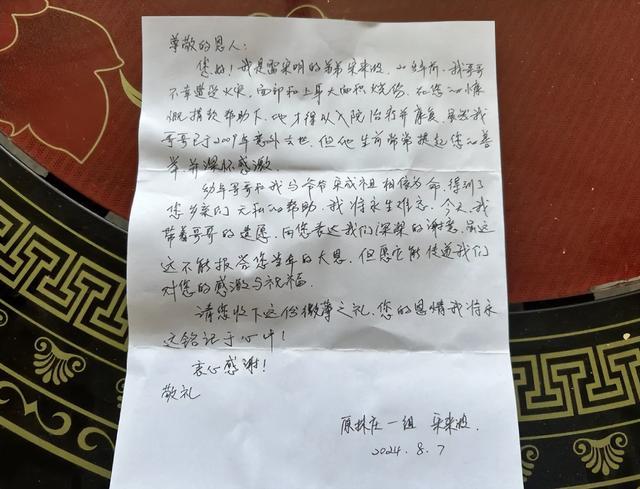 尊敬的恩人：
您好！我是雷荣明的弟弟荣来波，20多年前，我哥哥
不幸遭受火灾，面部和上身大面积烧伤，在您的慷
慨捐款帮助下，他才得以入院治疗并康复，虽然我
哥哥已于2009年意外去世，但他生前常常提起您的善
举，并深怀感激。
幼年哥哥和我与爷爷荣成祖相依为命，得到了
您乡亲们无私的帮助，我将永生难忘，今天，我
带着哥哥的遗愿，向您表达我们深深的谢意，虽
这不能报答您当年的大恩，但愿它能传达我们
对您的感激与祝福。
请您收下这份微薄之礼，您的恩情我将永
远铭记于心中！
衷心感谢！
敬礼
原林庄一组 荣来波.
2024.8.7